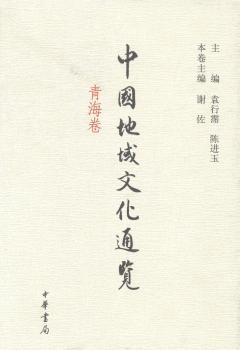 主　编　袁行霈　陈进玉
本卷主编　谢　佐
中國地域文化通覽
青海卷
中華書局